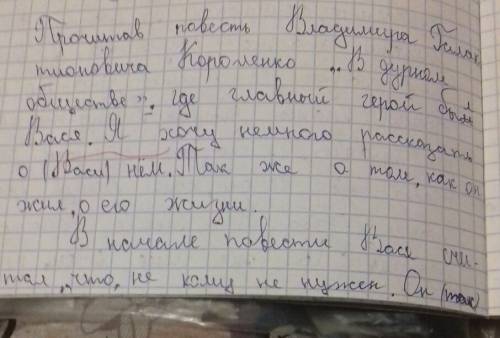 Прочитав повесть Владимира Галак
тионовича Короленко „В дурном
обществе", где главный герой был
Вася. Я хочу немного рассказать
о (Васи) нём. Так же о том, как он
жил, о его жизни.
В начале повести Вася счи-
тал, что, не кому не нужен. Он (так)